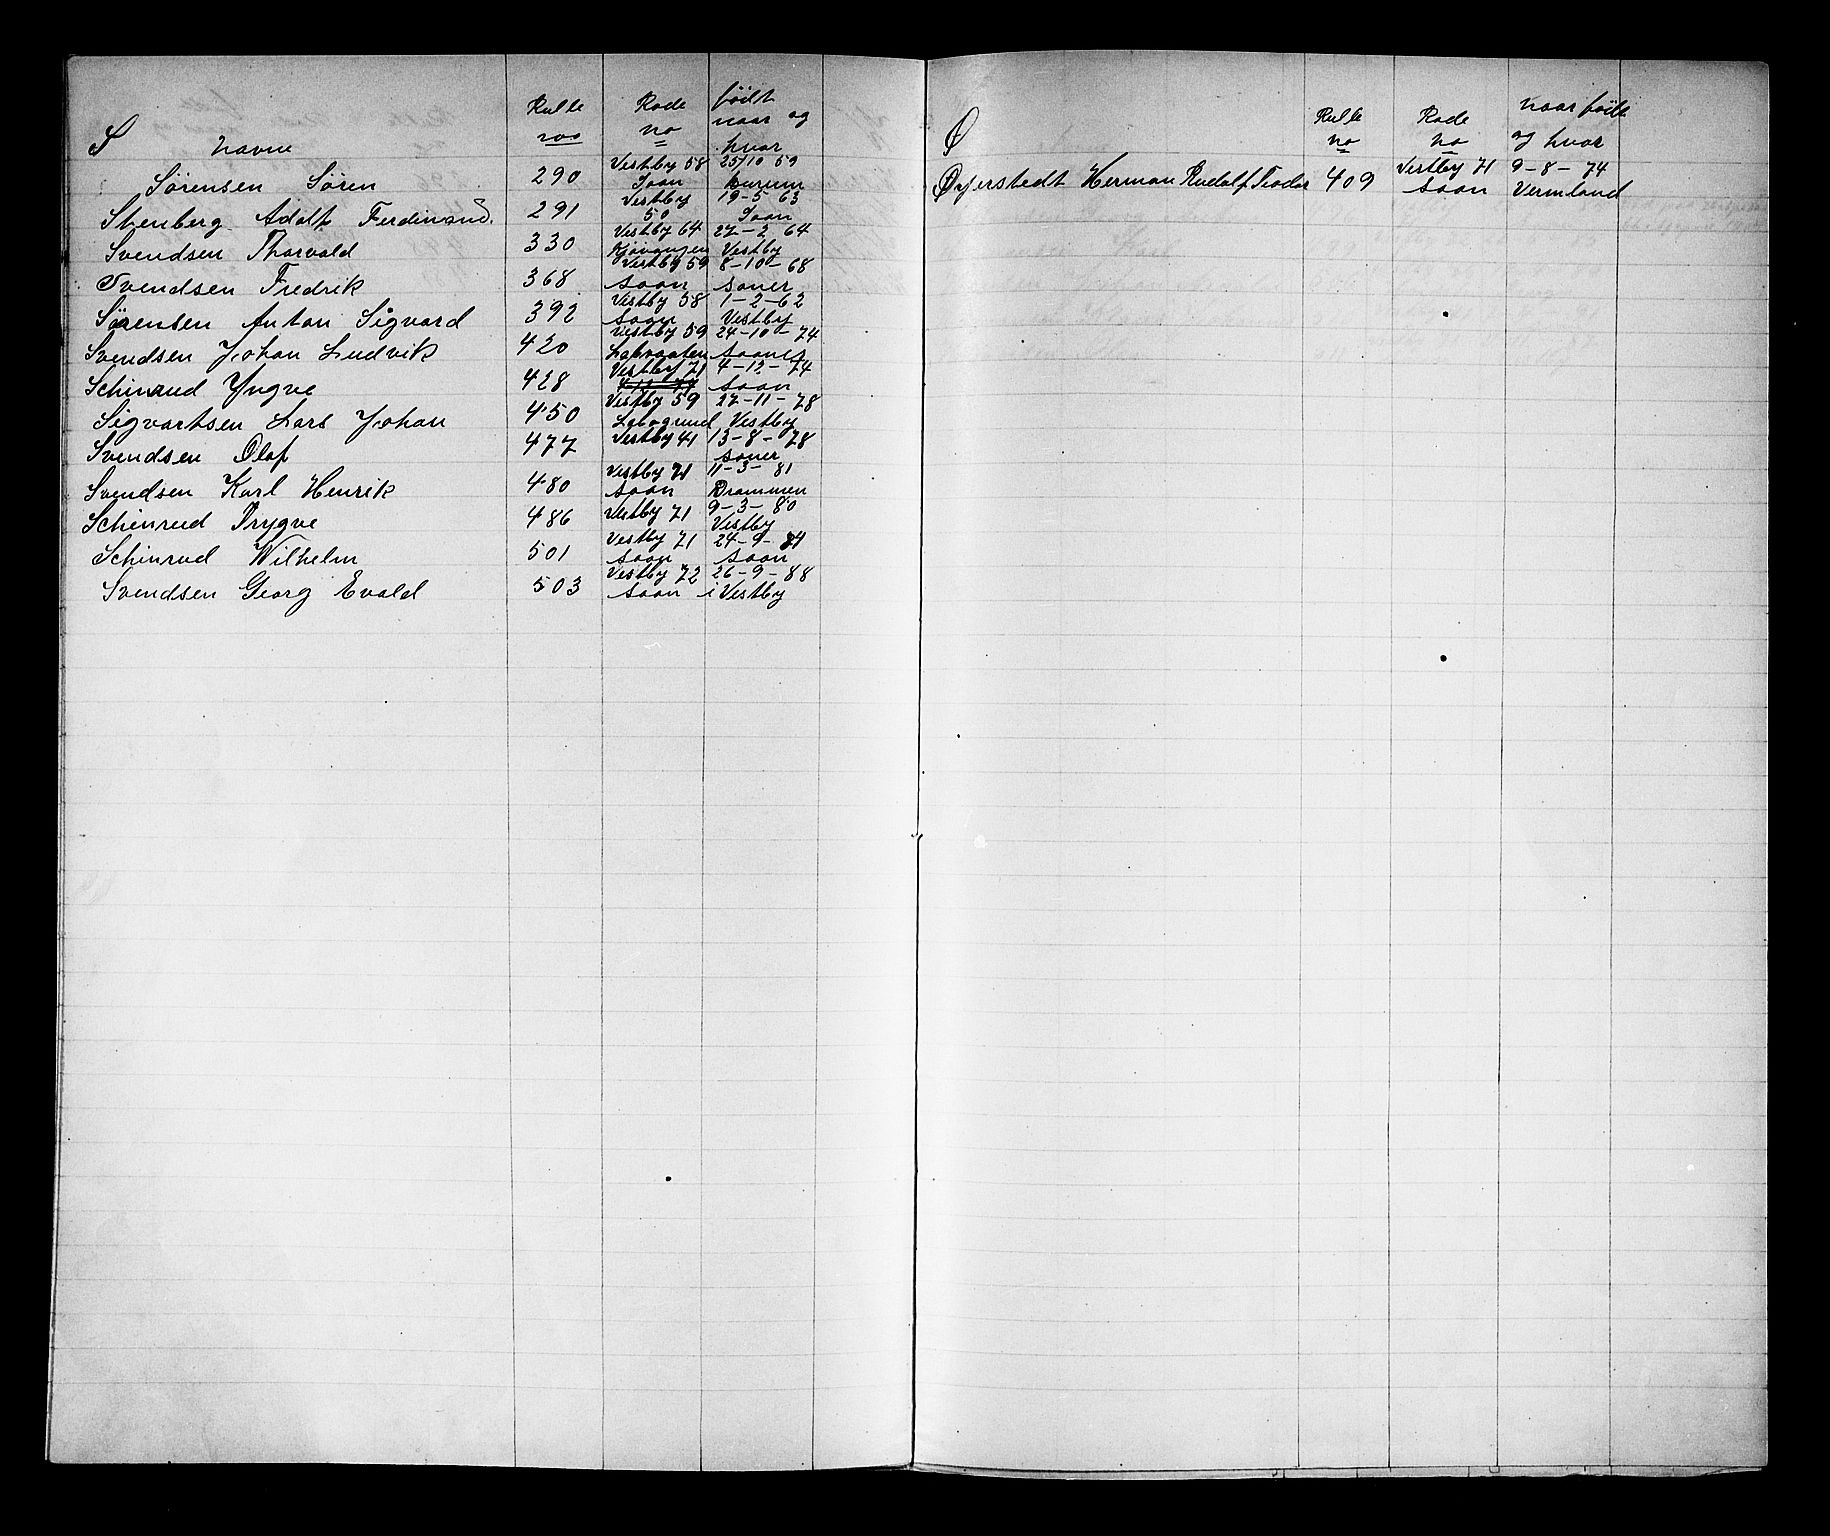 S Navne Rulle no Rode no født naar og hvor
Sørensen Søren 290 Vestby 58 Soon 25/10 59 Hurum
Stenberg Adolf Ferdinand. 291 Vestby 50 19-5-63 Soon
Svendsen Thorvald 330 Vestby 64 Kjøvangen 27-2-64 Vestby
Svendsen Fredrik 368 Vestby 59 Soon 8-10-68 Soner
Sørensen Anton Sigvard 392 Vestby 58 Soon 1-2-62 Vestby
Svendsen Johan Ludvik 420 Vestby 59 24-10-74
Schinrud Yngve 428 Vestby 71 4-12-74 Soon
Sigvartsen Lars Johan 450 Vestby 59 Labogrund 27-11-78 Vestby
Svendsen Olaf 477 Vestby 41 13-8-78 Soner
Svendsen Karl Henrik 480 Vestby 71 Soon 11-3-81 Drammen
Schinrud Trygve 486 Vestby 71 9-3-80 Vestby
Schinrud Wilhelm 501 Vestby 71 Soon 24-9- Soon
Svendsen Georg Evald 503 Vestby 72 Soon i 26-9-88 Vestby
Ø Rulle no Rode no naar født og hvor
Herman Rudolf Teodor 409 Vestby 71 Soon 9-8-74 Vermland